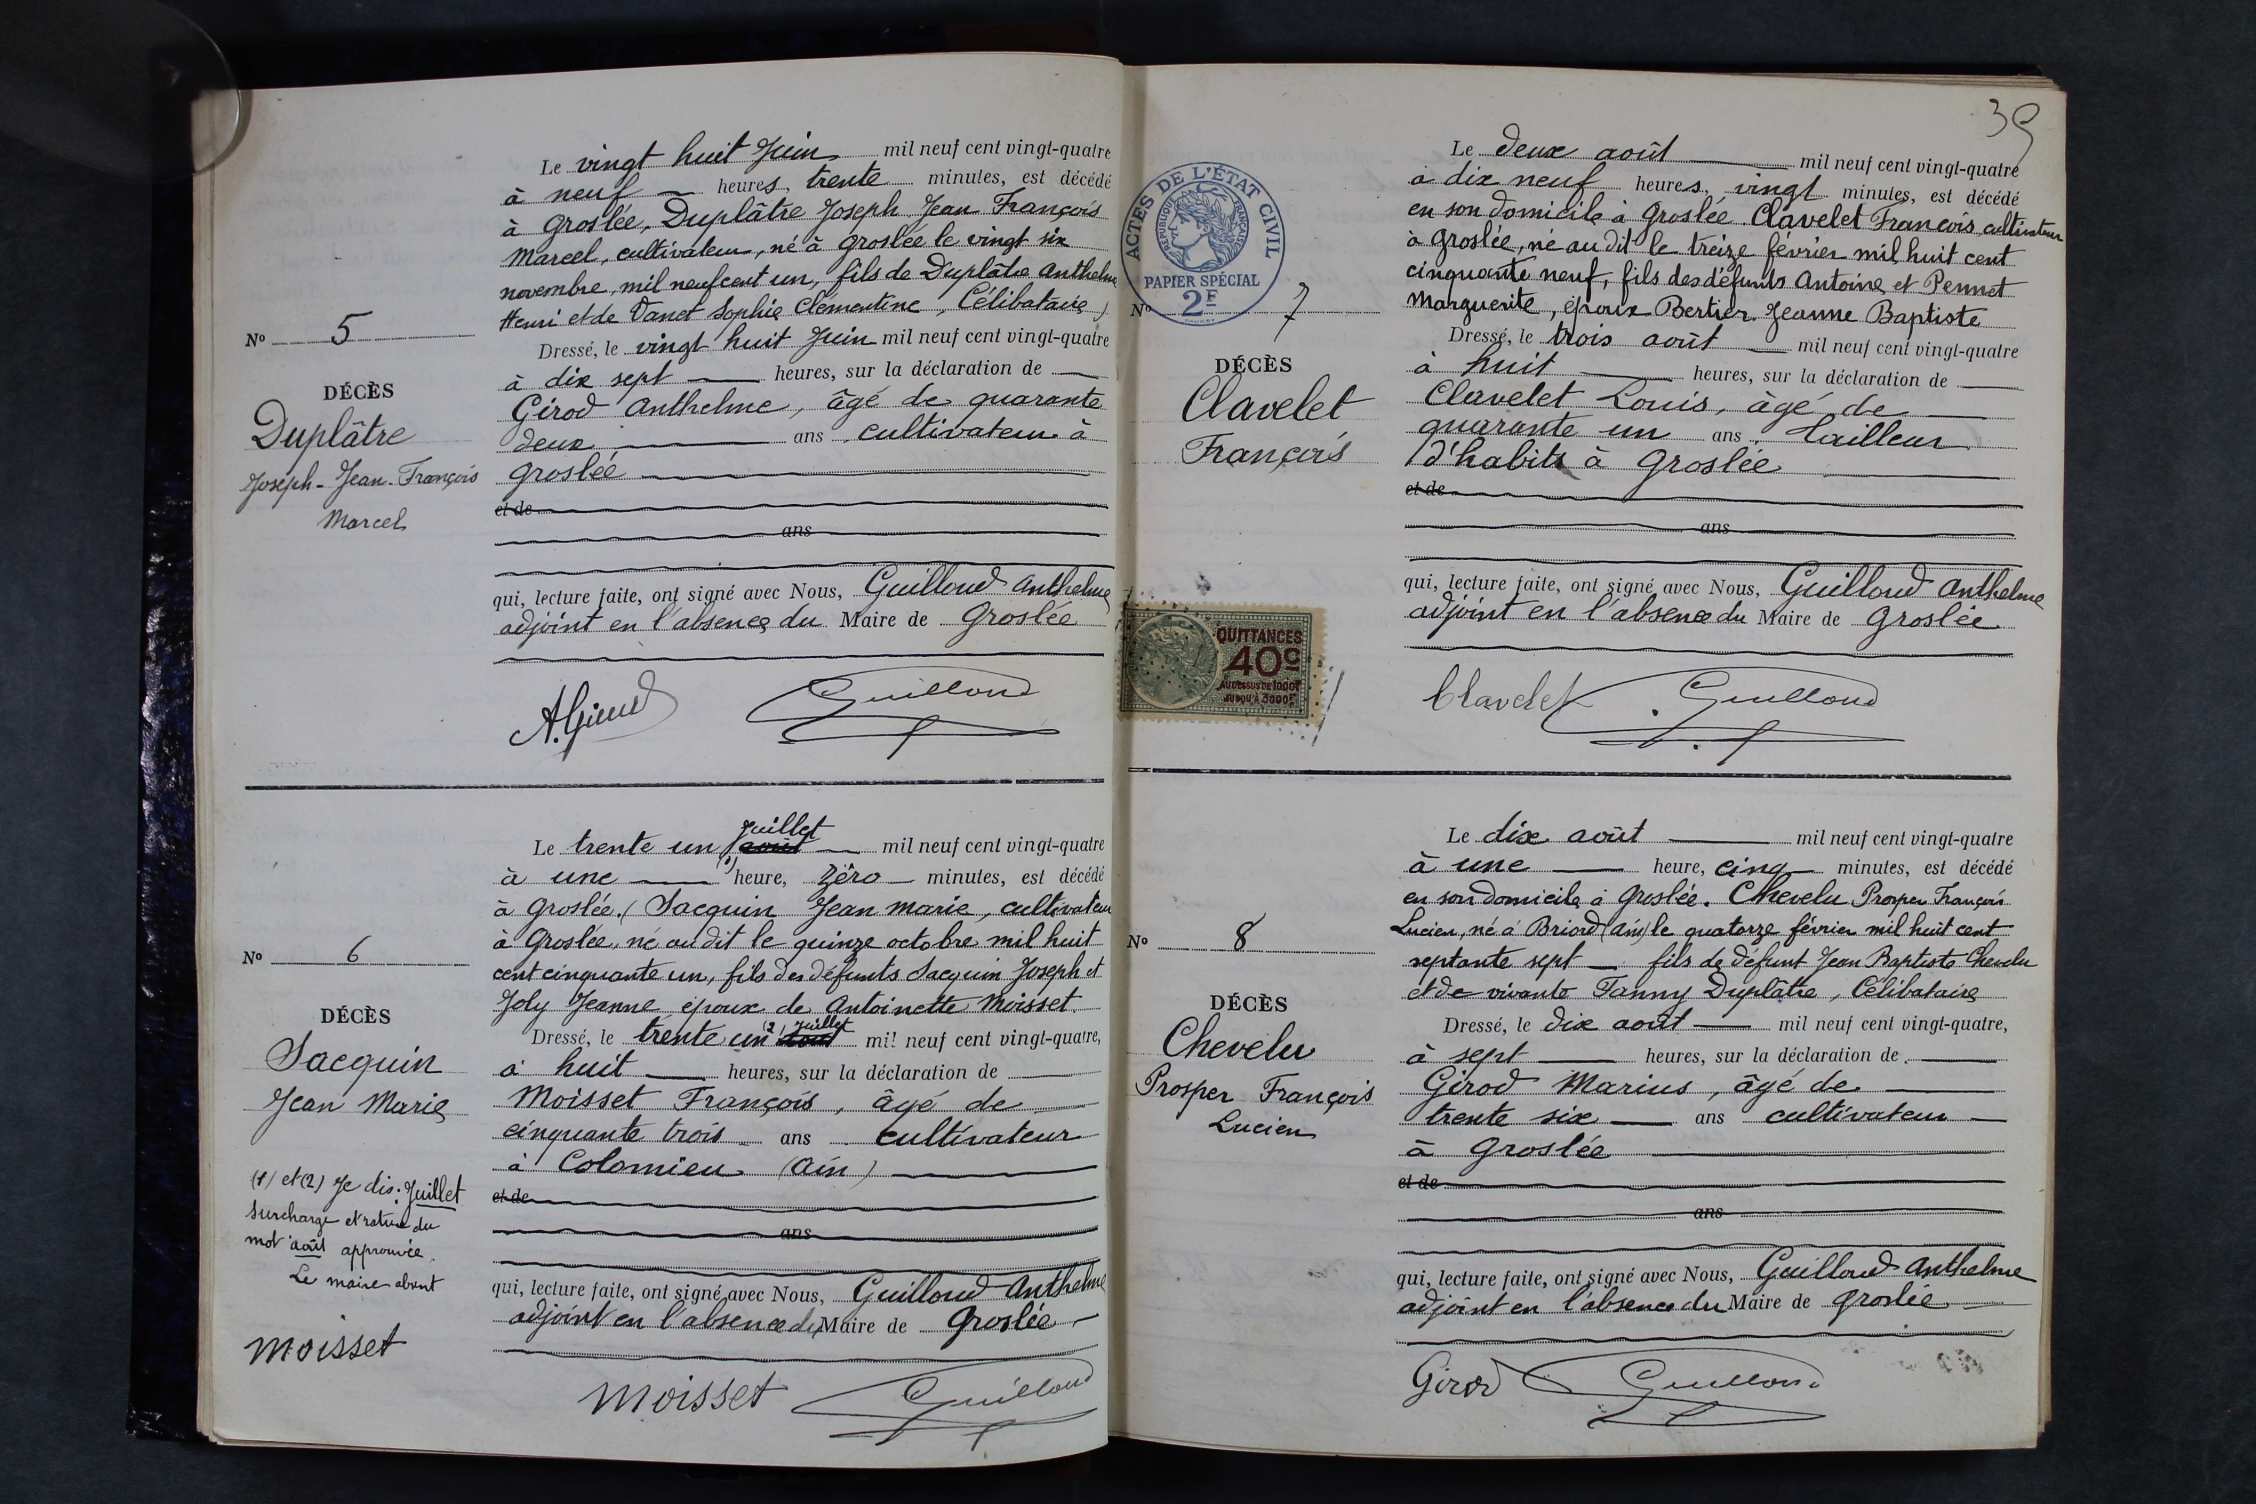 Le vingt huit Juin mil neuf cent vingt-quatre
à neuf heures, trente minutes, est décédé
à Groslée, Duplâtre Joseph Jean François
Marcel, cultivateur, né à Groslée le vingt six
novembre, mil neuf cent un, fils de Duplâtre Anthelme
Henri et de Vanet Sophie Clémentine, Célibataire
Dressé, le vingt huit Juin mil neuf cent vingt-quatre
à dix sept heures, sur la déclaration de
Girod Anthelme, âgé de quarante
deux ans cultivateur à
Groslée
et de
ans
qui, lecture faite, ont signé avec Nous, Guilloud Anthelme
adjoint en l'absence du Maire de Groslée
A. Girod Guilloud
No 5
DÉCÈS
Duplâtre
Joseph-Jean-François
Marcel
Le trente un (1) Juillet août mil neuf cent vingt-quatre
à une heure, zéro minutes, est décédé
à Groslée. Sacquin Jean Marie, cultivateur
à Groslée, né au dit le quinze octobre mil huit
cent cinquante un, fils des défunts Sacquin Joseph et
Joly Jeanne époux de Antoinette Moisset.
Dressé, le trente un (2) Juillet août mil neuf cent vingt-quatre,
à huit heures, sur la déclaration de
Moisset François, âgé de
cinquante trois ans cultivateur
à Colomieu (Ain)
et de
ans
qui, lecture faite, ont signé avec Nous, Guilloud Anthelme
adjoint en l'absence du Maire de Groslée
Moisset Guilloud
No 6
DÉCÈS
Sacquin
Jean Marie
(1) et (2) Je dis: Juillet
surcharge et rature du
mot août approuvée.
Le maire absent
Moisset
39
ACTES DE L'ÉTAT CIVIL
RÉPUBLIQUE FRANÇAISE
PAPIER SPÉCIAL
2F
Le deux août mil neuf cent vingt-quatre
à dix neuf heures, vingt minutes, est décédé
en son domicile à Groslée Clavelet François cultivateur
à Groslée, né au dit le treize février mil huit cent
cinquante neuf, fils des défunts Antoine et Pennet
Marguerite, époux Bertier Jeanne Baptiste
Dressé, le trois août mil neuf cent vingt-quatre
à huit heures, sur la déclaration de
Clavelet Louis, âgé de
quarante un ans tailleur
d'habits à Groslée
et de
ans
qui, lecture faite, ont signé avec Nous, Guilloud Anthelme
adjoint en l'absence du Maire de Groslée
Clavelet Guilloud
No 7
DÉCÈS
Clavelet
François
QUITTANCES
40c
AU DESSUS DE 1000F
JUSQU'A 3000F
Le dix août mil neuf cent vingt-quatre
à une heure, cinq minutes, est décédé
en son domicile à Groslée. Chevelu Prosper François
Lucien, né à Briord (Ain) le quatorze février mil huit cent
septante sept fils de défunt Jean Baptiste Chevelu
et de vivante Fanny Duplâtre, Célibataire
Dressé, le dix août mil neuf cent vingt-quatre,
à sept heures, sur la déclaration de
Girod Marius, âgé de
trente six ans cultivateur
à Groslée
et de
ans
qui, lecture faite, ont signé avec Nous, Guilloud Anthelme
adjoint en l'absence du Maire de Groslée
Girod Guilloud
No 8
DÉCÈS
Chevelu
Prosper François
Lucien